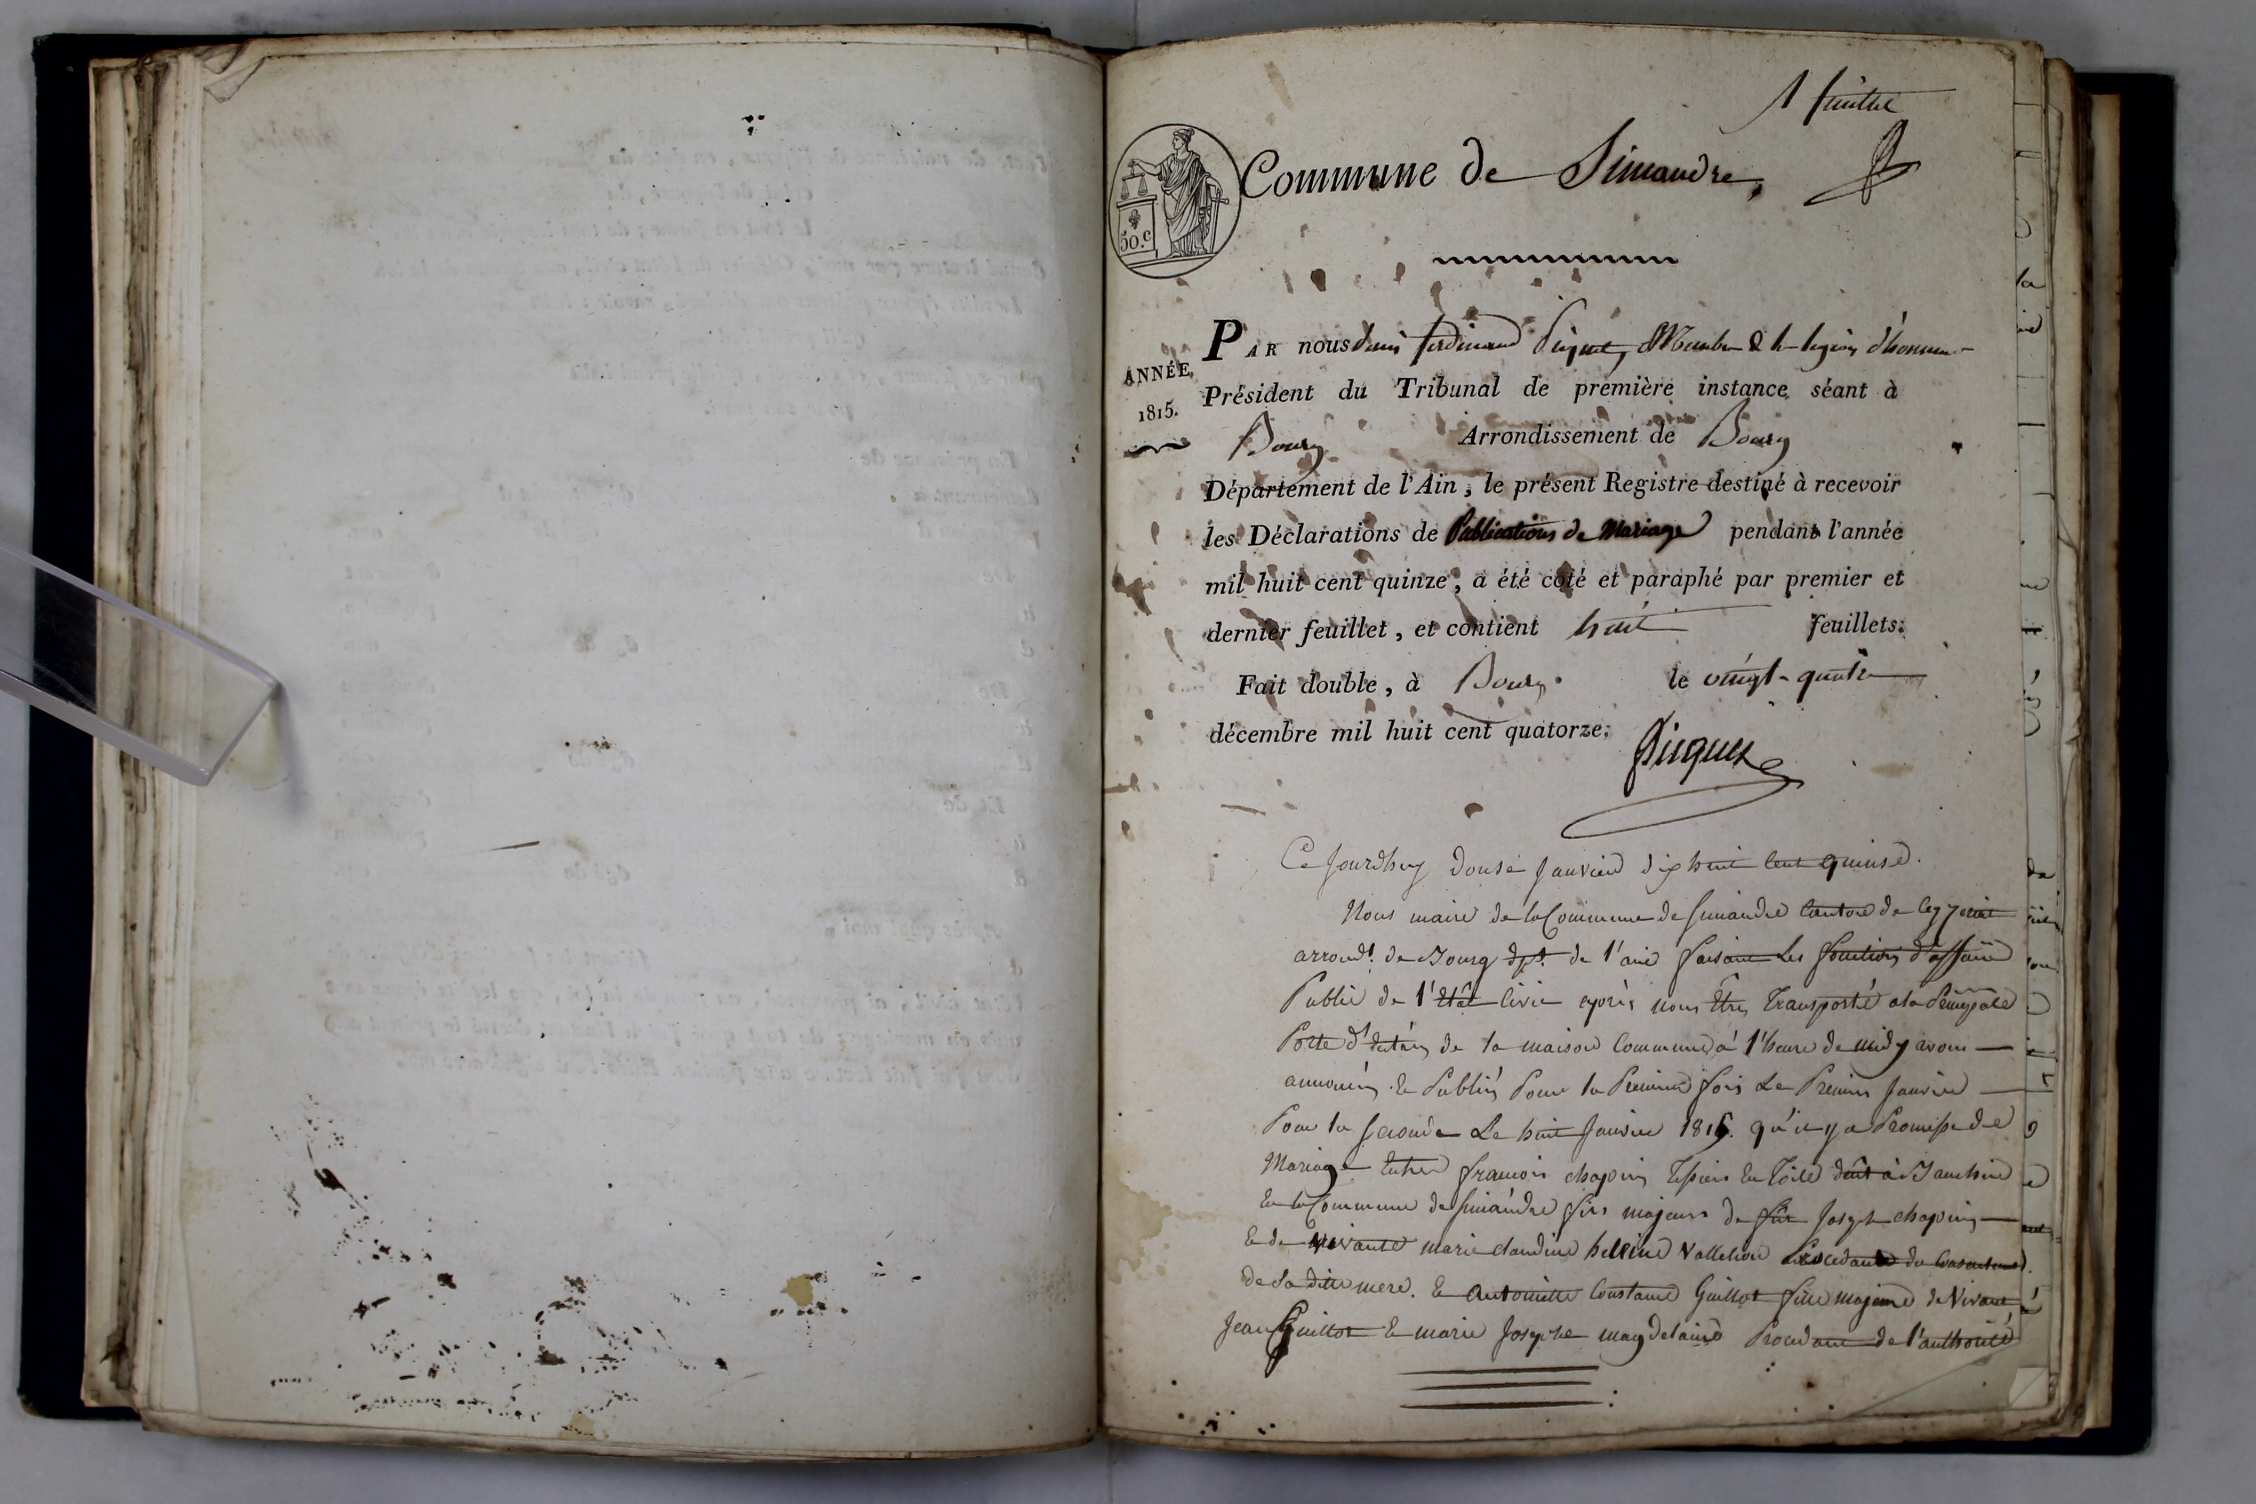 1 feuillet
Commune de Simandre,
50.c
PAR nous Denis ferdinand Picquet, Membre de la legion d'honneur
ANNÉE,
1815.
Président du Tribunal de première instance séant à
Bourg Arrondissement de Bourg
Département de l'Ain, le présent Registre destiné à recevoir
les Déclarations de Publications de Mariage pendant l'année
mil huit cent quinze, a été coté et paraphé par premier et
dernier feuillet, et contient huit feuillets.
Fait double, à Bourg le vingt-quatre
décembre mil huit cent quatorze.
Picquet
Ce Jourdhuy douse Janvier dix huit Cent quinse.
Nous maire de la Commune de Simandre Canton de Ceyzeriat
arrondt. de Bourg dpt. de l'ain faisant Les fonctions d'
Public de l'état Civil après nous être Transporté a la Principale
Porte de la maison Commune à l'heure de midy avons
annoncés & Publiés Pour la Premiere fois Le Premier Janvier
Pour la seconde Le huit Janvier 1815. qu'il y a Promesse de
Mariage Entre francois chapuis Tissier En Toile
En la Commune de Simandre fils majeur de feu Joseph chapuis
& de vivante marie claudine du Consentement
de sa ditte mere. & Antoinette Constance Guillot fille majeure de Vivant
Jean Guillot & marie Josephe magdelaine Procedant de l'authorité